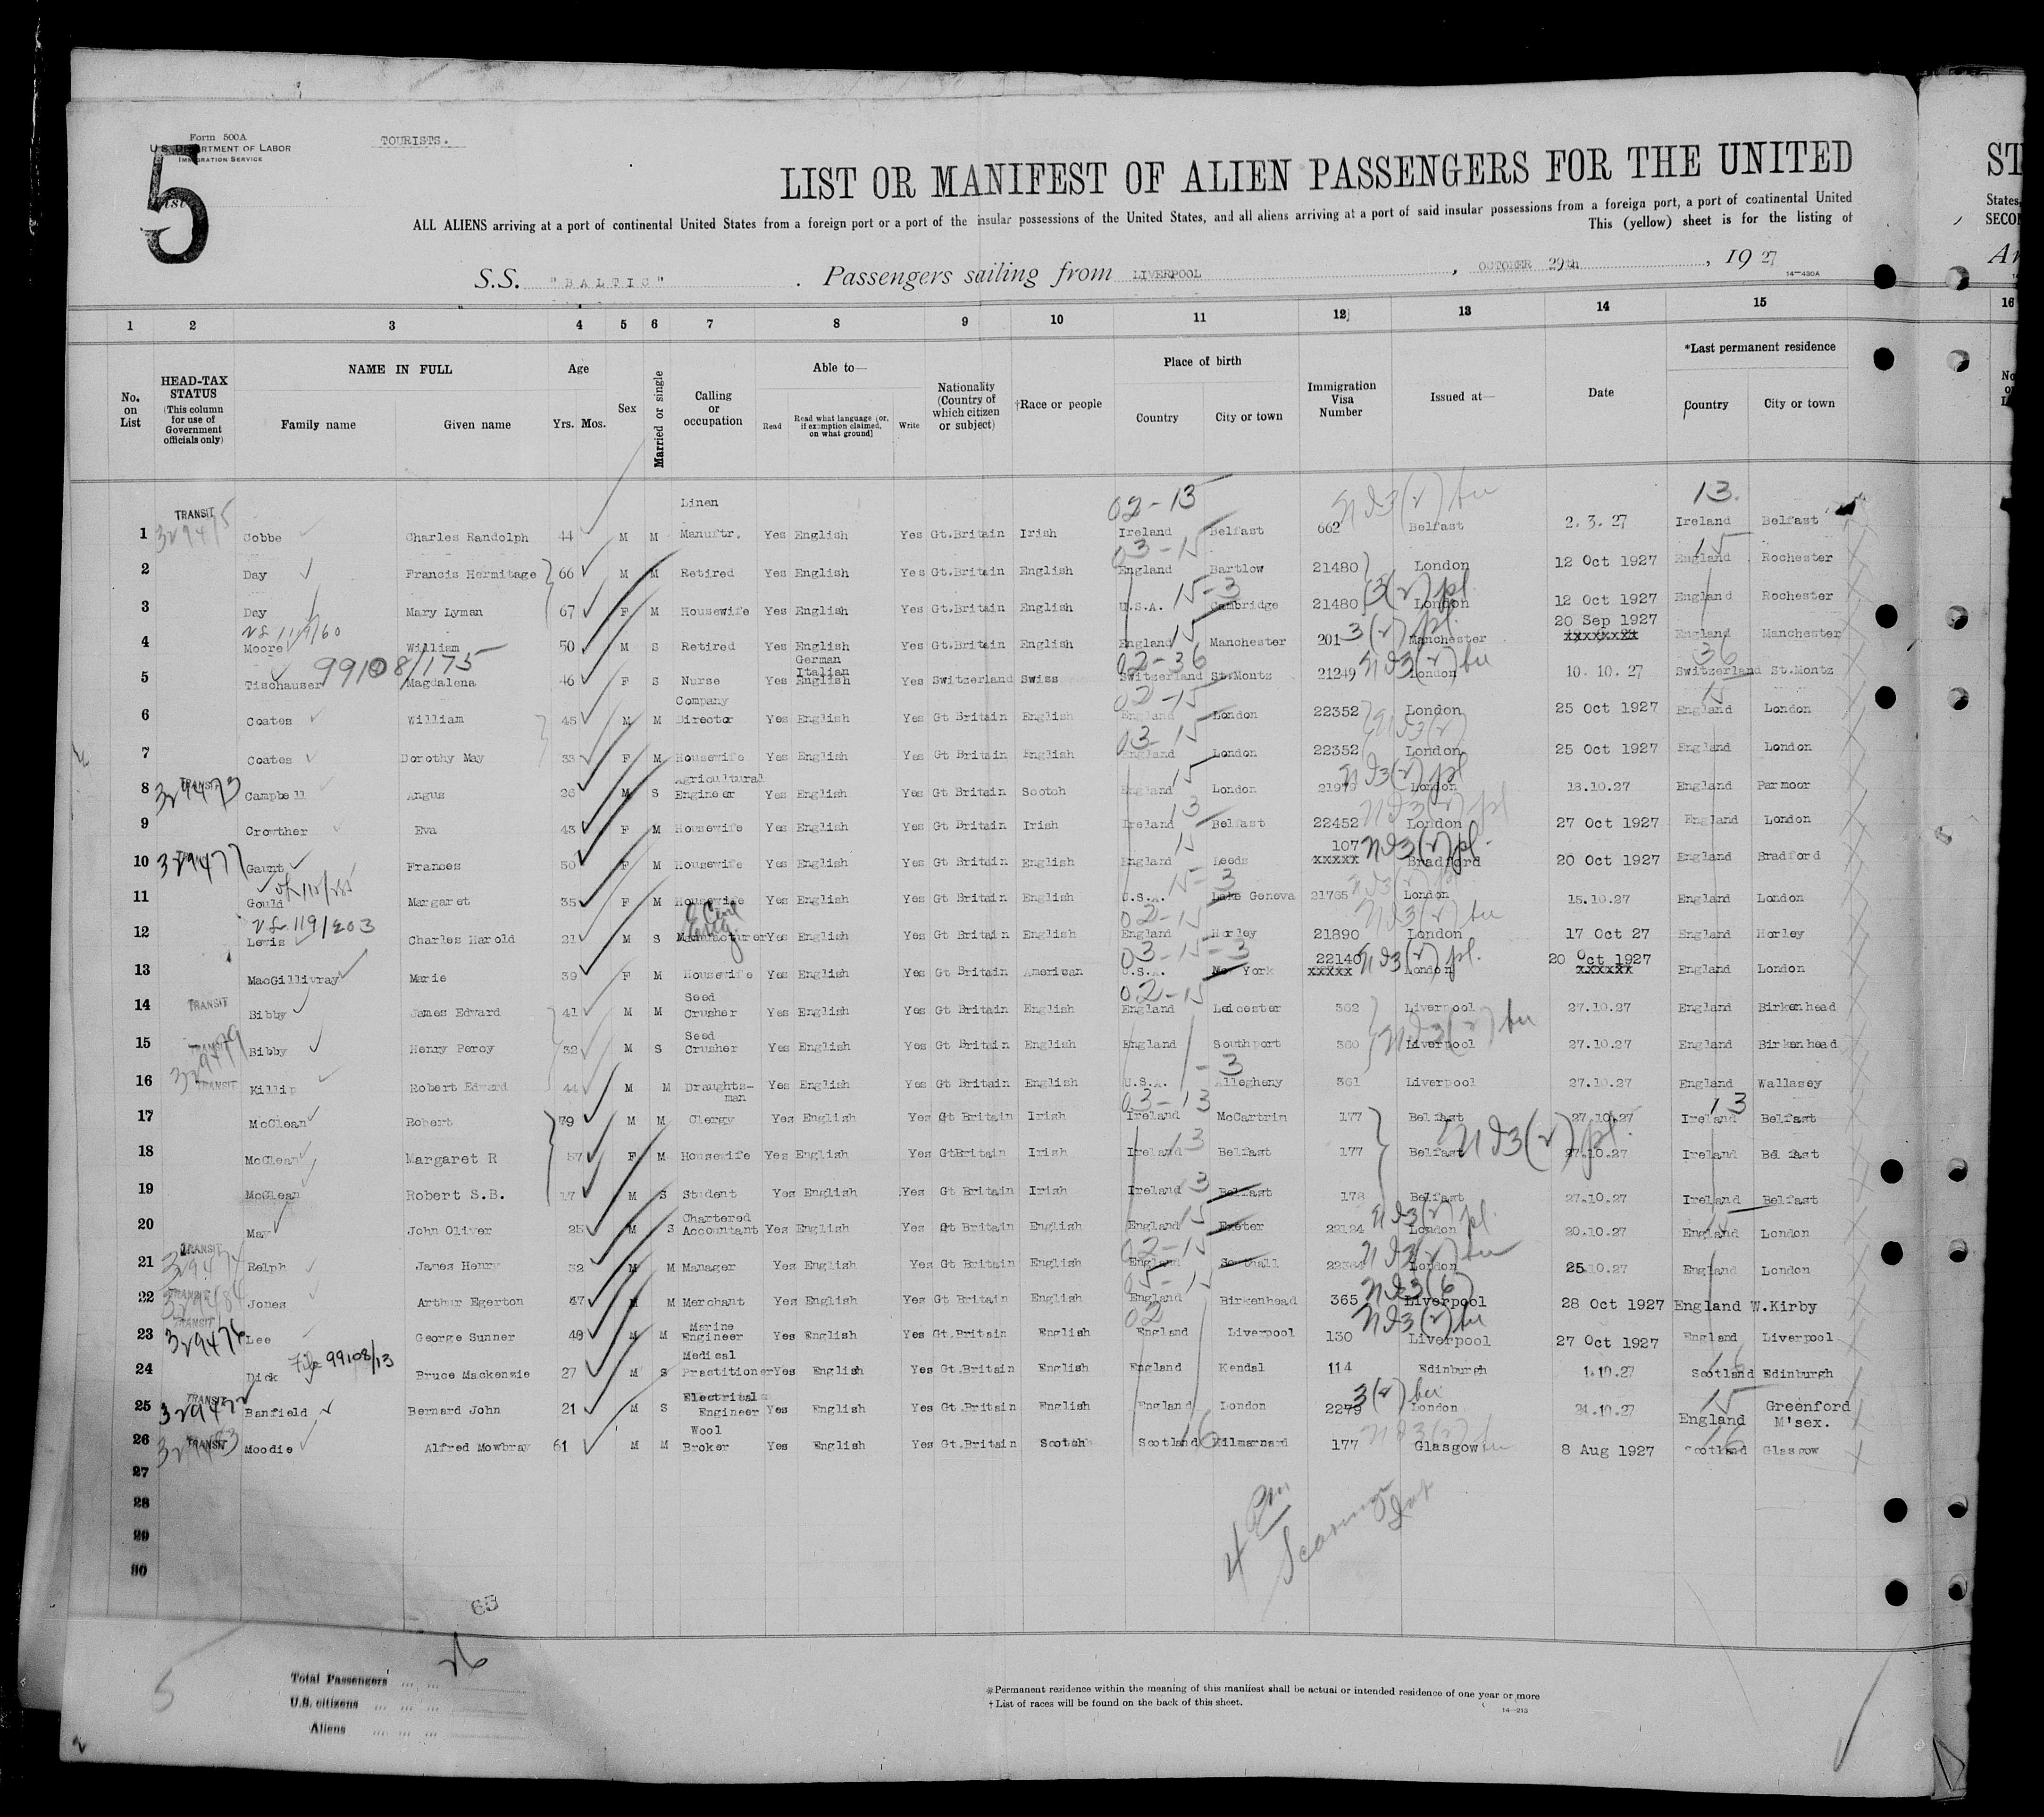 Form 500A
U.S. DEPARTMENT OF LABOR
IMMIGRATION SERVICE
TOURISTS.
5
LIST OR MANIFEST OF ALIEN PASSENGERS FOR THE UNITED
ST
ALL ALIENS arriving at a port of continental United States from a foreign port or a port of the insular possessions of the United States, and all aliens arriving at a port of said insular possessions from a foreign port, a port of continental United
States,
This (yellow) sheet is for the listing of
SECON
S.S. "BALTIC" . Passengers sailing from LIVERPOOL , OCTOBER 29th , 19 27
14-430A
1 2 3 4 5 6 7 8 9 10 11 12 13 14 15 16
No. on List
HEAD-TAX STATUS (This column for use of Government officials only)
NAME IN FULL
Family name Given name
Age Yrs. Mos.
Sex
Married or single
Calling or occupation
Able to—
Read Read what language (or, if exemption claimed, on what ground) Write
Nationality (Country of which citizen or subject)
†Race or people
Place of birth
Country City or town
Immigration Visa Number
Issued at—
Date
*Last permanent residence
Country City or town
1 TRANSIT Cobbe Charles Randolph 44 M M Linen Manuftr. Yes English Yes Gt.Britain Irish 02-13 Ireland Belfast 662 Belfast 2. 3. 27 13. Ireland Belfast
2 Day Francis Hermitage 66 M M Retired Yes English Yes Gt.Britain English 03-15 England Bartlow 21480 London 12 Oct 1927 15 England Rochester
3 Day Mary Lyman 67 F M Housewife Yes English Yes Gt.Britain English 15-3 U.S.A. Cambridge 21480 3(v) pl London 12 Oct 1927 England Rochester
4 Moore William 50 M S Retired Yes English Yes Gt.Britain English 15 England Manchester 201 3(v) pl. Manchester 20 Sep 1927 xxxxxxxx England Manchester
99108/175
5 Tischauser Magdalena 46 F S Nurse Yes German Italian English Yes Switzerland Swiss 02-36 Switzerland St.Montz 21249 London 10. 10. 27 36 Switzerland St.Montz
6 Coates William 45 M M Company Director Yes English Yes Gt Britain English 02-15 England London 22352 London 25 Oct 1927 15 England London
7 Coates Dorothy May 33 F M Housewife Yes English Yes Gt Britain English 03-15 England London 22352 London 25 Oct 1927 England London
8 TRANSIT 329473 Campbell Angus 26 M S Agricultural Engineer Yes English Yes Gt Britain Scotch 15 England London London 18.10.27 England Parmoor
9 Crowther Eva 43 F M Housewife Yes English Yes Gt Britain Irish 13 Ireland Belfast 22452 London 27 Oct 1927 England London
10 329477 Gaunt Frances 50 F M Housewife Yes English Yes Gt Britain English 15 England Leeds 107 xxxxx Bradford 20 Oct 1927 England Bradford
11 Gould Margaret 35 F M Housewife Yes English Yes Gt Britain English 15-3 U.S.A. Lake Geneva 21765 London 15.10.27 England London
119/203
12 Lewis Charles Harold 21 M S Manufacturer Civil Eng. Yes English Yes Gt Britain English 02-15 England Horley 21890 London 17 Oct 27 England Horley
13 MacGillivray Marie 39 F M Housewife Yes English Yes Gt Britain American 03-15-3 U.S.A. New York 22140 xxxxx London 20 Oct 1927 xxxxxx England London
14 TRANSIT Bibby James Edward 41 M M Seed Crusher Yes English Yes Gt Britain English 02-15 England Leicester 362 Liverpool 27.10.27 England Birkenhead
15 TRANSIT 329479 Bibby Henry Percy 32 M S Seed Crusher Yes English Yes Gt Britain English England Southport 360 Liverpool 27.10.27 England Birkenhead
16 TRANSIT Killip Robert Edward 44 M M Draughts-man Yes English Yes Gt Britain English -3 U.S.A. Allegheny 361 Liverpool 27.10.27 England Wallasey
17 McClean Robert 79 M M Clergy Yes English Yes Gt Britain Irish 03-13 Ireland McCartrim 177 Belfast 27.10.27 13 Ireland Belfast
18 McClean Margaret R 57 F M Housewife Yes English Yes GtBritain Irish 13 Ireland Belfast 177 Belfast 27.10.27 Ireland Belfast
19 McClean Robert S.B. 17 M S Student Yes English Yes Gt Britain Irish 13 Ireland Belfast 178 Belfast 27.10.27 Ireland Belfast
20 May John Oliver 25 M S Chartered Accountant Yes English Yes Gt Britain English 15 England Exeter 22124 London 20.10.27 15 England London
21 TRANSIT 329474 Relph James Henry 32 M M Manager Yes English Yes Gt Britain English 02-15 England Southall London 25.10.27 England London
22 TRANSIT Jones Arthur Egerton 47 M M Merchant Yes English Yes Gt Britain English 05-15 England Birkenhead 365 Liverpool 28 Oct 1927 England W.Kirby
23 TRANSIT 329476 Lee George Sunner 49 M M Marine Engineer Yes English Yes Gt.Britain English 02 England Liverpool 130 Liverpool 27 Oct 1927 England Liverpool
24 Dick File 99108/13 Bruce Mackenzie 27 M S Medical Practitioner Yes English Yes Gt.Britain English England Kendal 114 Edinburgh 1.10.27 16 Scotland Edinburgh
25 TRANSIT 329472 Banfield Bernard John 21 M S Electrical Engineer Yes English Yes Gt.Britain English England London 2279 3(v) London 24.10.27 15 England Greenford M'sex.
26 TRANSIT Moodie Alfred Mowbray 61 M M Wool Broker Yes English Yes Gt.Britain Scotch 16 Scotland Kilmarnard 177 Glasgow 8 Aug 1927 16 Scotland Glasgow
27
28
29
30
4 Pm
65
26
5
Total Passengers
U.S. citizens
Aliens
*Permanent residence within the meaning of this manifest shall be actual or intended residence of one year or more
†List of races will be found on the back of this sheet.
14-213